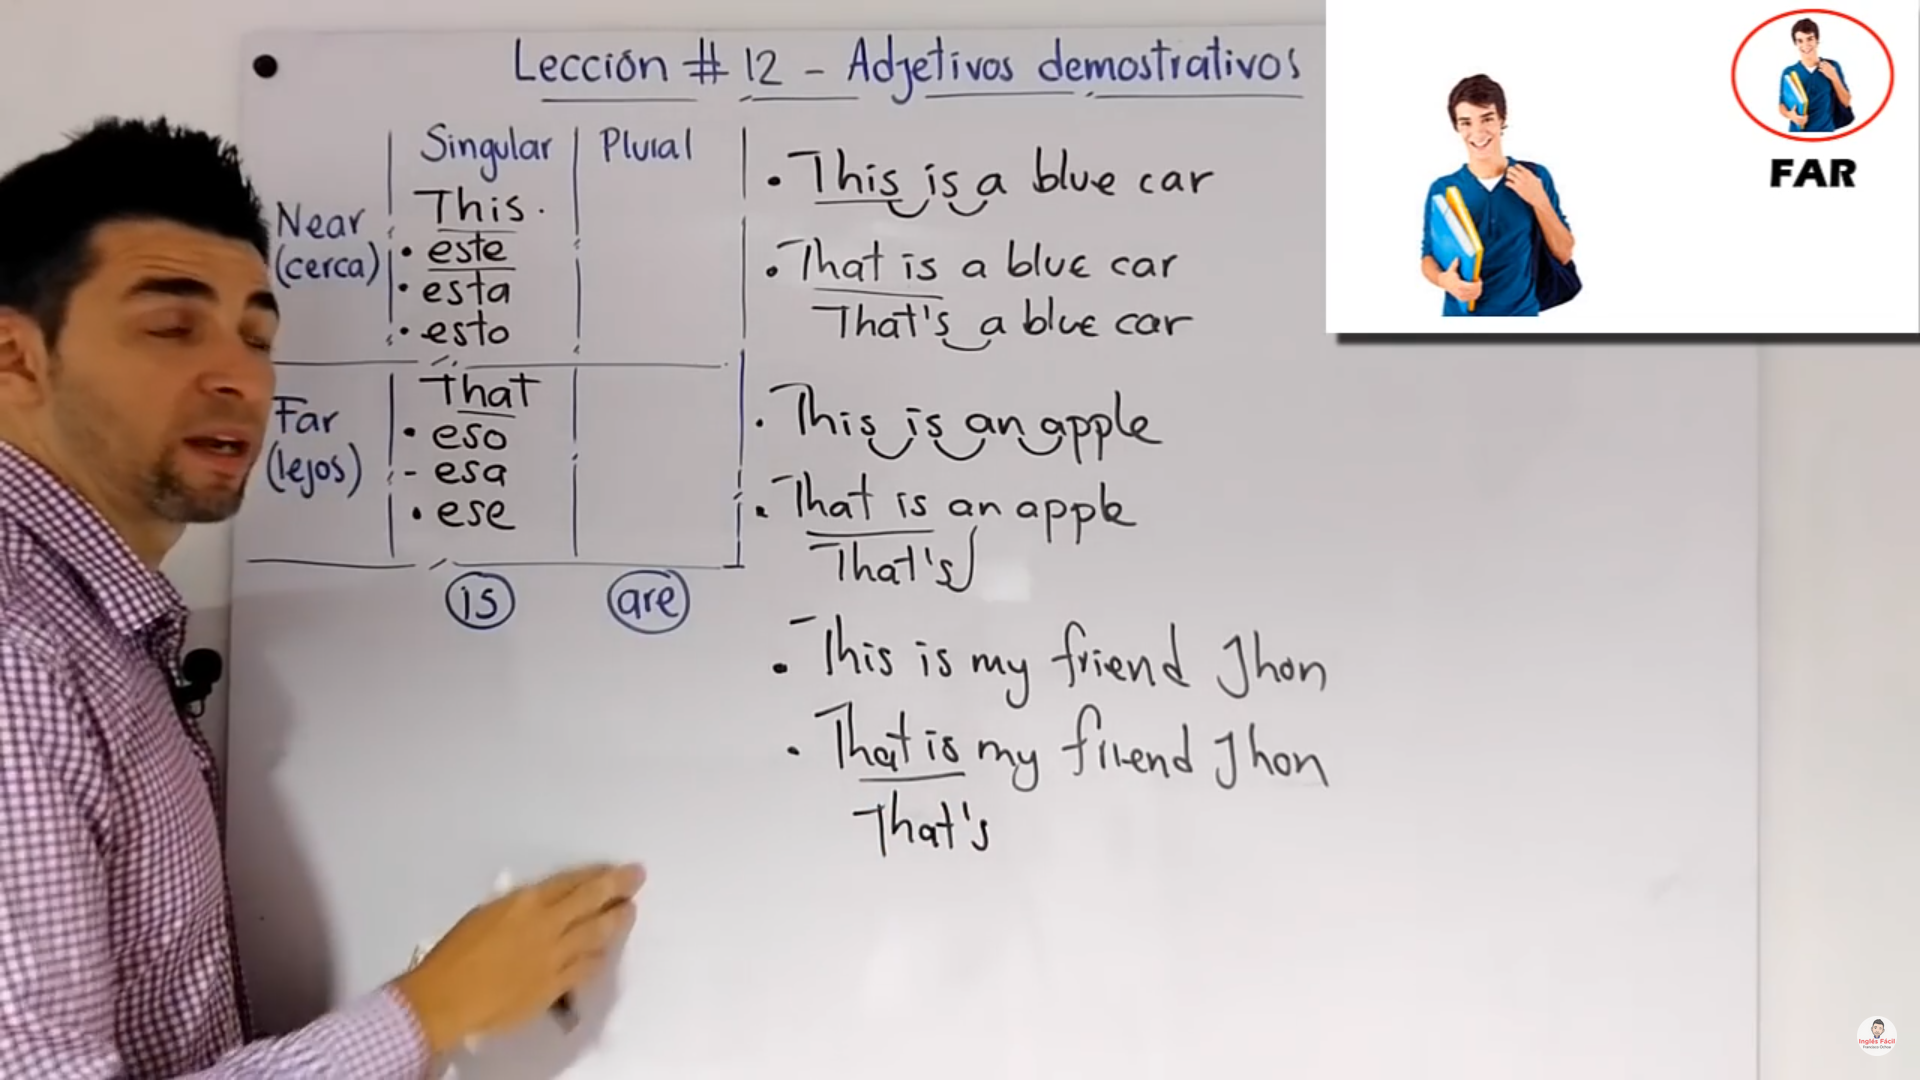 Lección # 12 - Adjetivos demostrativos
Singular
Plural
Near
(cerca)
This.
• este
• esta
• esto
Far
(lejos)
That
• eso
- esa
• ese
is
are
• This is a blue car
• That is a blue car
That's a blue car
• This is an apple
• That is an apple
That's
• This is my friend Jhon
• That is my friend Jhon
That's
FAR
Inglés Fácil